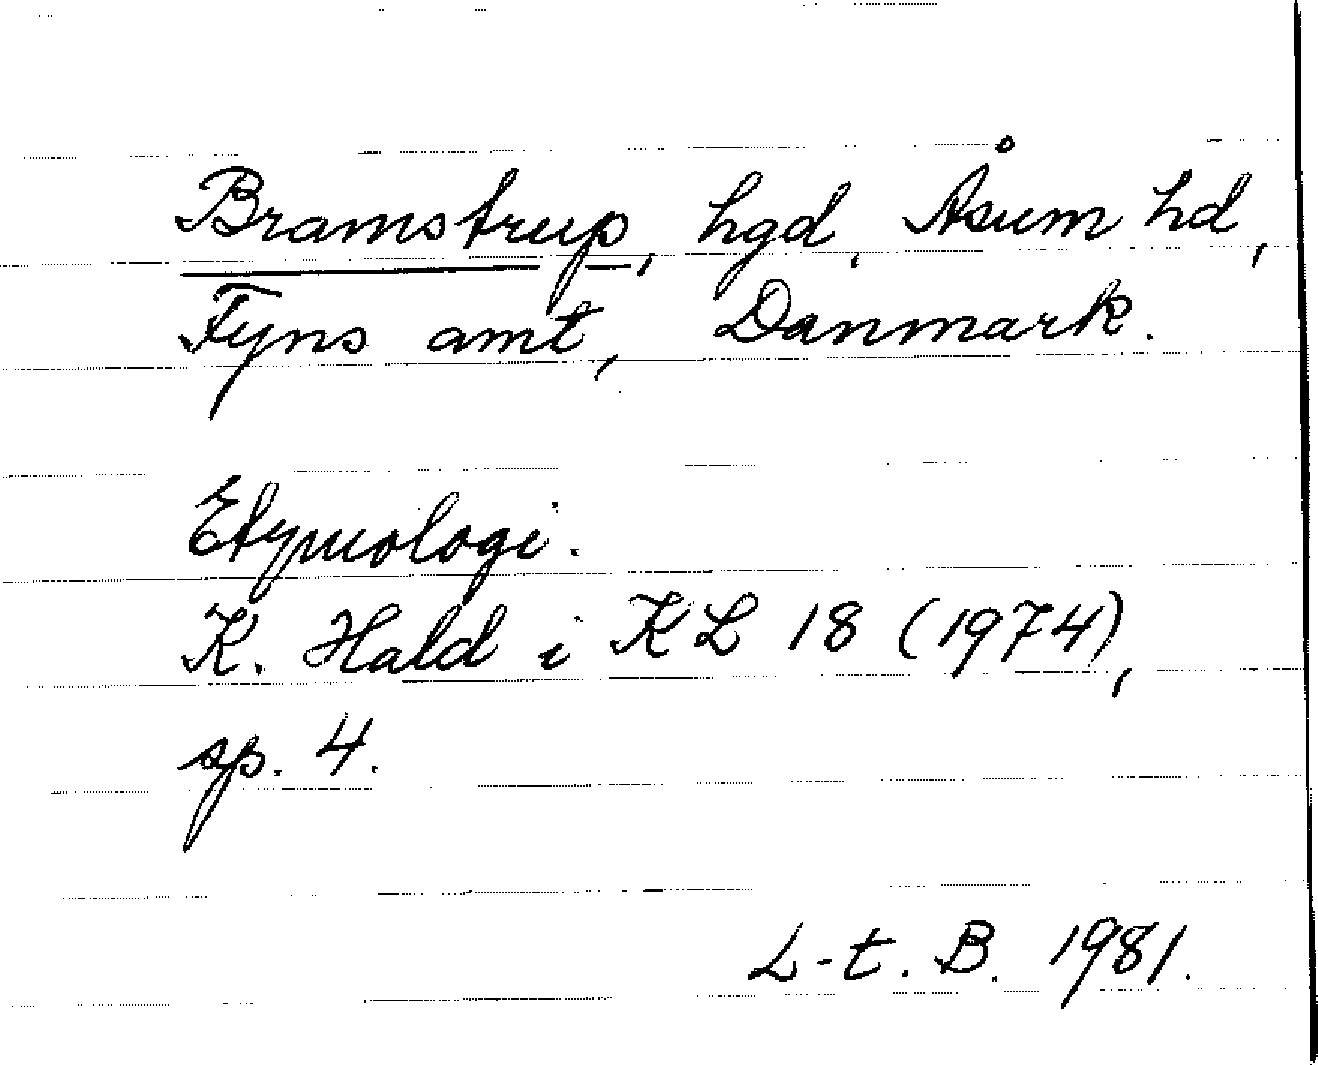 Bramstrup, hgd, Åsum hd,
Fyns amt, Danmark.
Etymologi.
K. Hald i KL 18 (1974),
sp. 4.
L-t. B. 1981.